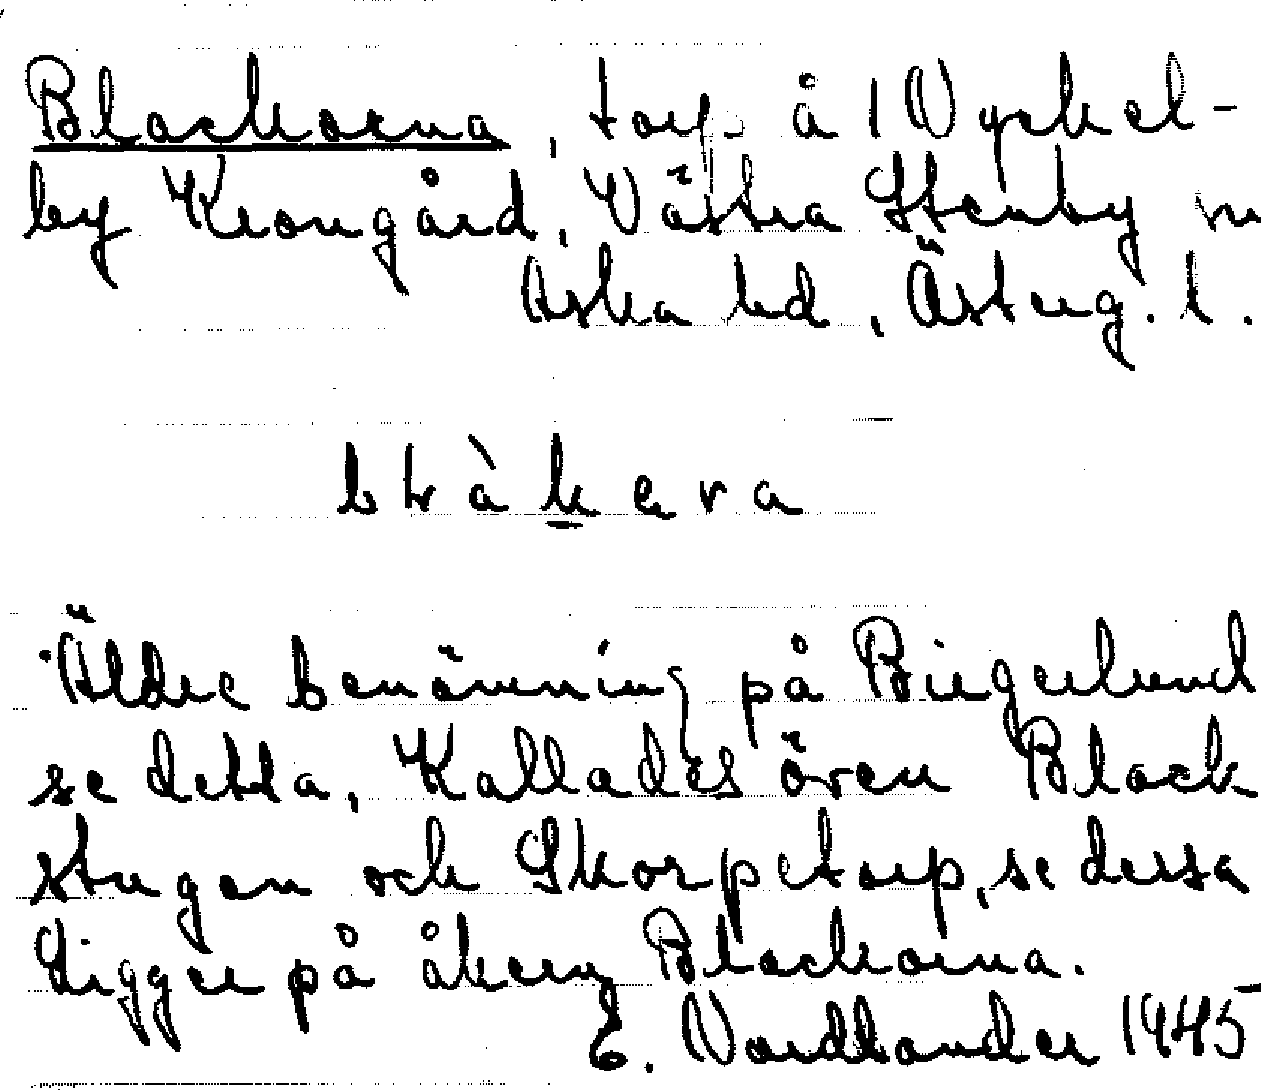 Blackorna, torp å 1 Nyckel-
by Krongård, Västra Stenby
Aska hd, Österg. l.
blàkera
Äldre benämning på Birgerlund
se detta, Kallades även Black
stugan och Skorpetorp, se dessa
Ligger på åkern Blackorna.
E. Nordlander 1945